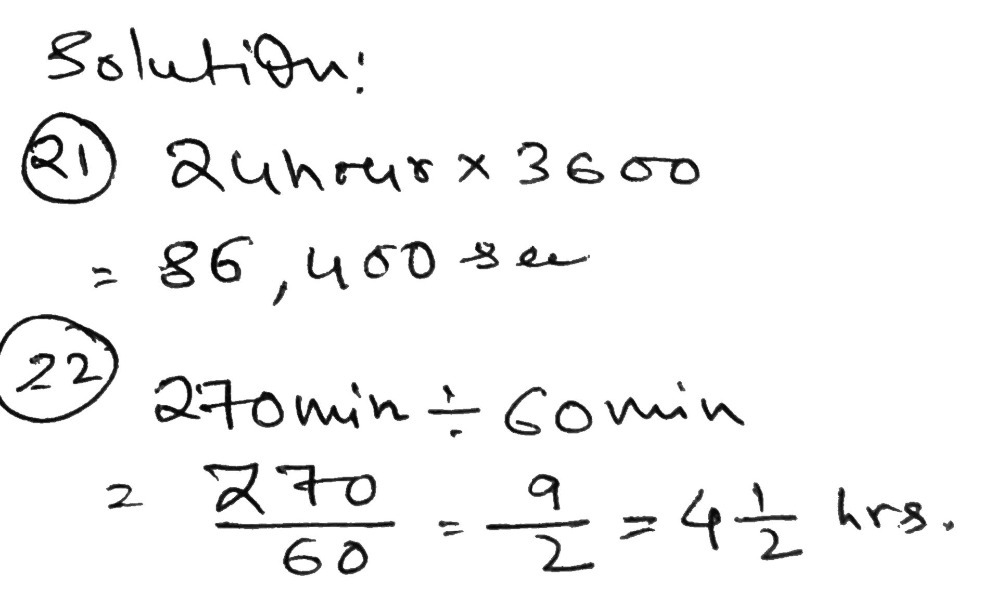 Solution:
(21) 24hour × 3600
= 86,400 sec
(22) 270min ÷ 60min
= 270/60 = 9/2 = 4 1/2 hrs.